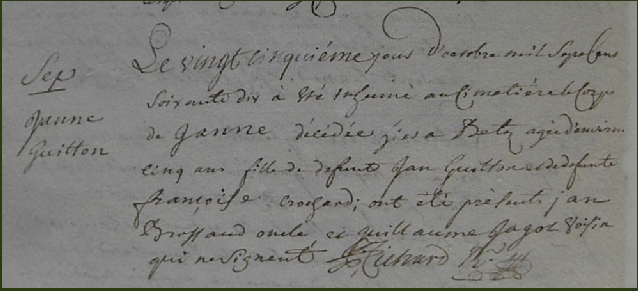 Sep
Janne
Guitton
Le vingt cinquiéme jour d'octobre mil Sept Cens
Soixante dix à été inhumé au Cimetiére le Corps
de Janne décédée hier a Betz agée d'environ
cinq ans fille de defunt Jan Guitton et de defunte
françoise crochard; ont été présents jan
Brossaud oncle et guillaume Jagot Voisin
qui ne Signent Richard